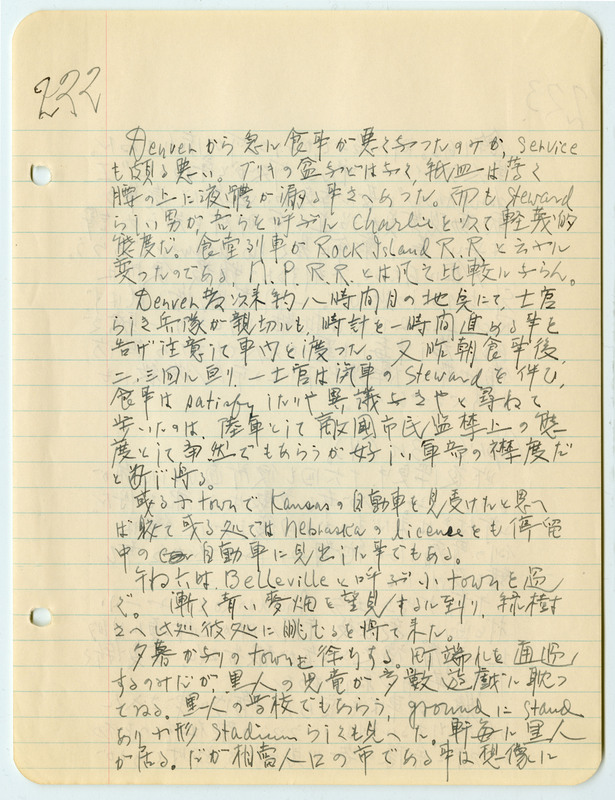 222
Denverから急に食事が悪くなつたのみか、service
も頗る悪い。ブリキの盆などはなく、紙皿は薄く
膝の上に液體が漏る事さへあった。而もsteward
らしい男が吾らを呼ぶに Charlieと以て軽蔑的
態度だ。食堂列車が Rock Island R.R.と云ヤに
変ったのである。M.P.R.R.とは凡そ比較にならん。
Denver發以来約八時間目の地点にて、士官
らしき兵隊が親切にも、時計を一時間進める事を
告げ注意して車内を渡った。又昨朝食事後、
二、三回に亘り、一士官は汽車のstewardを伴ひ、
食事はsatisfyしたりや異議なきやと尋ねて
歩いたのは、陸軍として敵國市民監禁上の態
度として当然でもあらうが好い軍部の襟度だ
と断じ得る。
或る小townでKansasの自動車を見受けたと思へ
ば駅て或る処ではNebraskaのlicenseをも停留
中の自動車に見出した事でもある。
午ね六は、Bellevilleと呼ぶ小townを過
ぐ。漸く青い麦畑を望見するに到り、緑樹
さへ此処彼処に眺むるを得て来た。
夕暮かなりのtownを徐行する。町端れを通過
するのみだが、黒人の児童が多数遊戯に耽つ
てゐる。黒人の学校でもあらう、groundにstand
あり小形Stadiumらしくも見へた。軒毎に黒人
が居る。だが相当人口の市である事は想像に